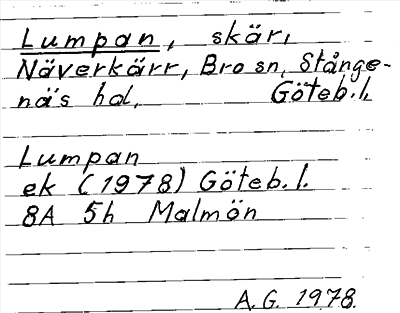 Lumpan, skär,
Näverkärr, Bro sn, Stånge-
näs hd, Göteb.l.
Lumpan
ek (1978) Göteb.l.
8A 5h Malmön
A.G. 1978.